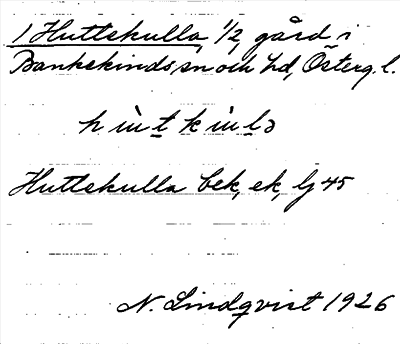 1 Huttekulla, 1/2, gård i
Bankekinds sn och hd, Österg. l.
Huttekulla bek, ek, lj 45
N. Lindqvist 1926